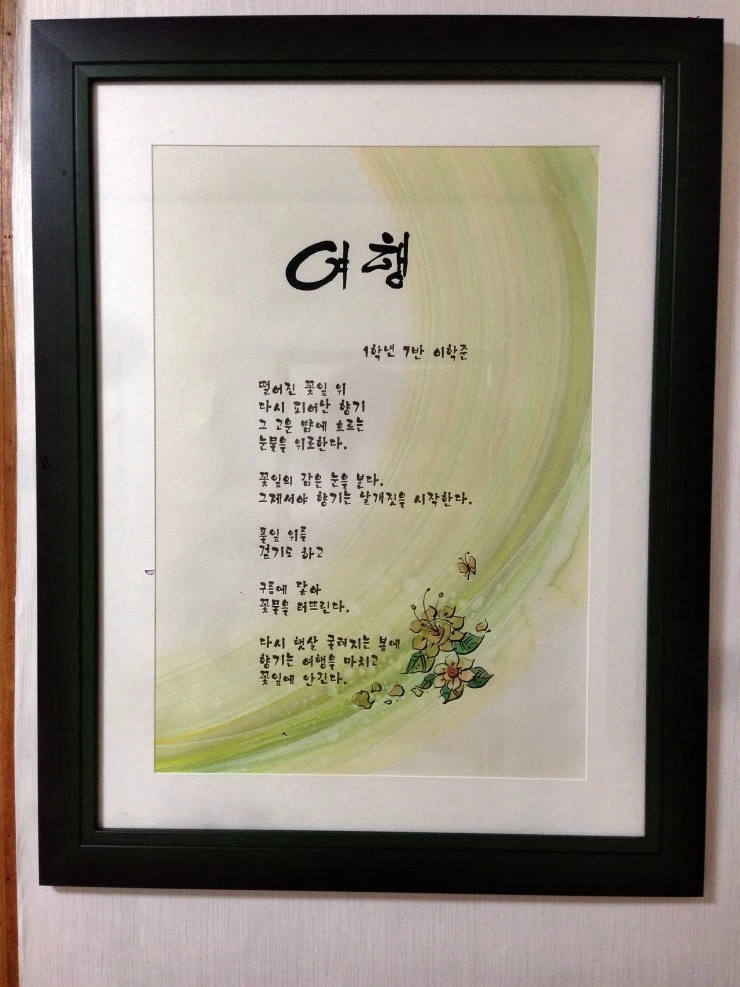 여행
1학년 7반 이학준
떨어진 꽃잎 위
다시 피어난 향기
그 고운 뺨에 흐르는
눈물을 위로한다.
꽃잎의 감은 눈을 본다.
그제서야 향기는 날개짓을 시작한다.
꽃잎 위를
걷기도 하고
구름에 닿아
꽃물을 터뜨린다.
다시 햇살 굴려지는 봄에
향기는 여행을 마치고
꽃잎에 안긴다.